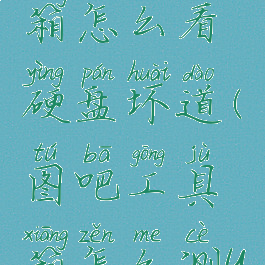 箱怎么看
yìng pán huài dào
硬盘坏道(
tú bā gōng jù
图吧工具
xiāng zěn me cè
箱怎么测